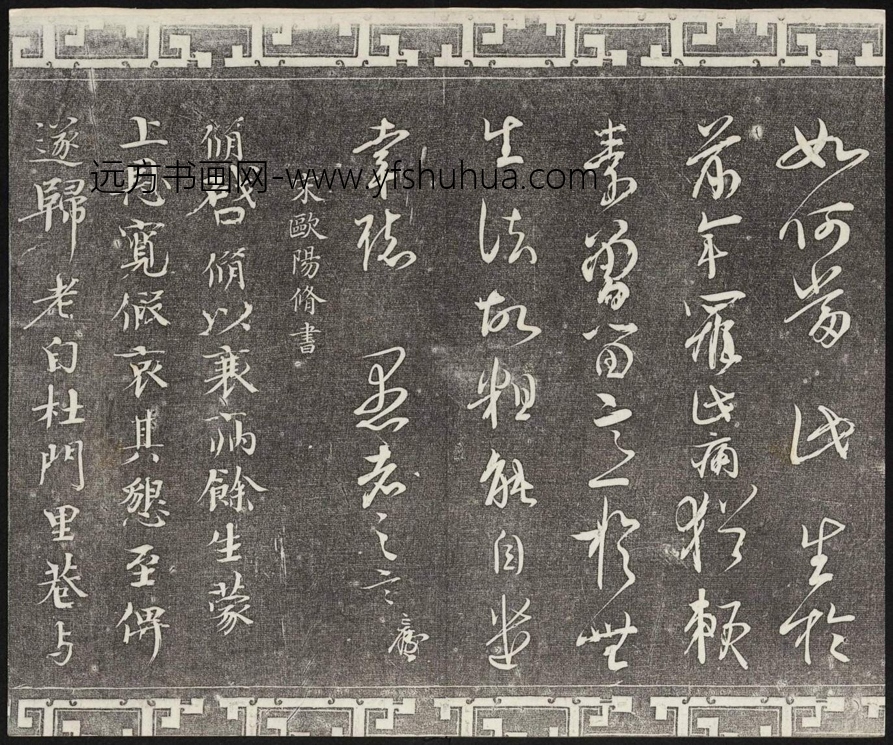 如何當此生於
前年罹此痛猶賴
素曾留意於無
生法故粗能自遣
愚老之言
宋歐陽脩書
脩啓脩以衰病餘生蒙
上恩寬假哀其懇至俾
遂歸老自杜門里巷与
远方书画网-www.yfshuhua.com